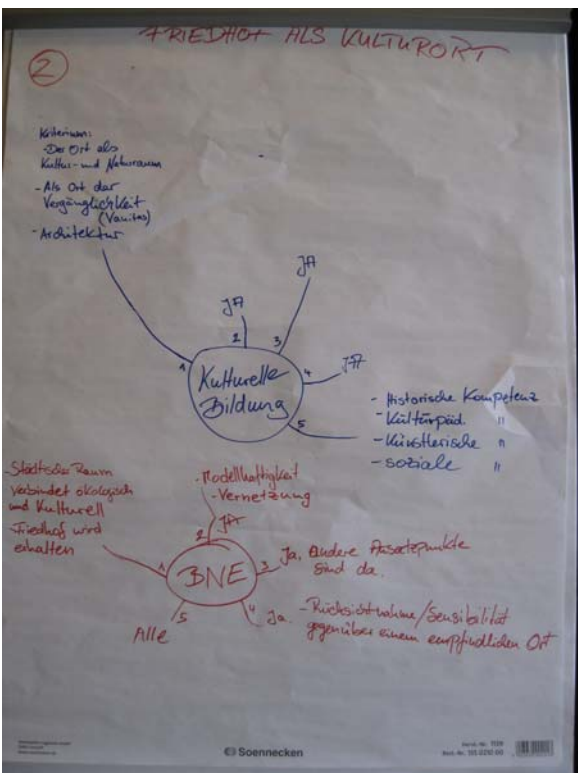 FRIEDHOF ALS KULTURORT
2
Kriterium:
- Der Ort als
Kultur- und Naturraum
- Als Ort der
Vergänglichkeit
(Vanitas)
- Architektur
JA
JA
JA
1
2
3
4
5
Kulturelle
Bildung
- Historische Kompetenz
- Kulturpäd. "
- Künstlerische "
- soziale "
- Städtischer Raum
verbindet ökologisch
und Kulturell
- Friedhof wird
erhalten
- Modellhaftigkeit
- Vernetzung
JA
1
2
3
4
5
BNE
Ja. Andere Ansatzpunkte
sind da.
Ja. - Rücksichtnahme/Sensibilität
gegenüber einem empfindlichen Ort
Alle
Soennecken